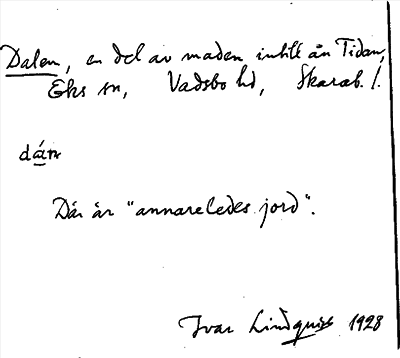 Dalen, en del av maden intill ån Tidan,
Eks sn, Vadsbo hd, Skarab. l.
Där är "annareledes jord".
Ivar Lindquist 1928